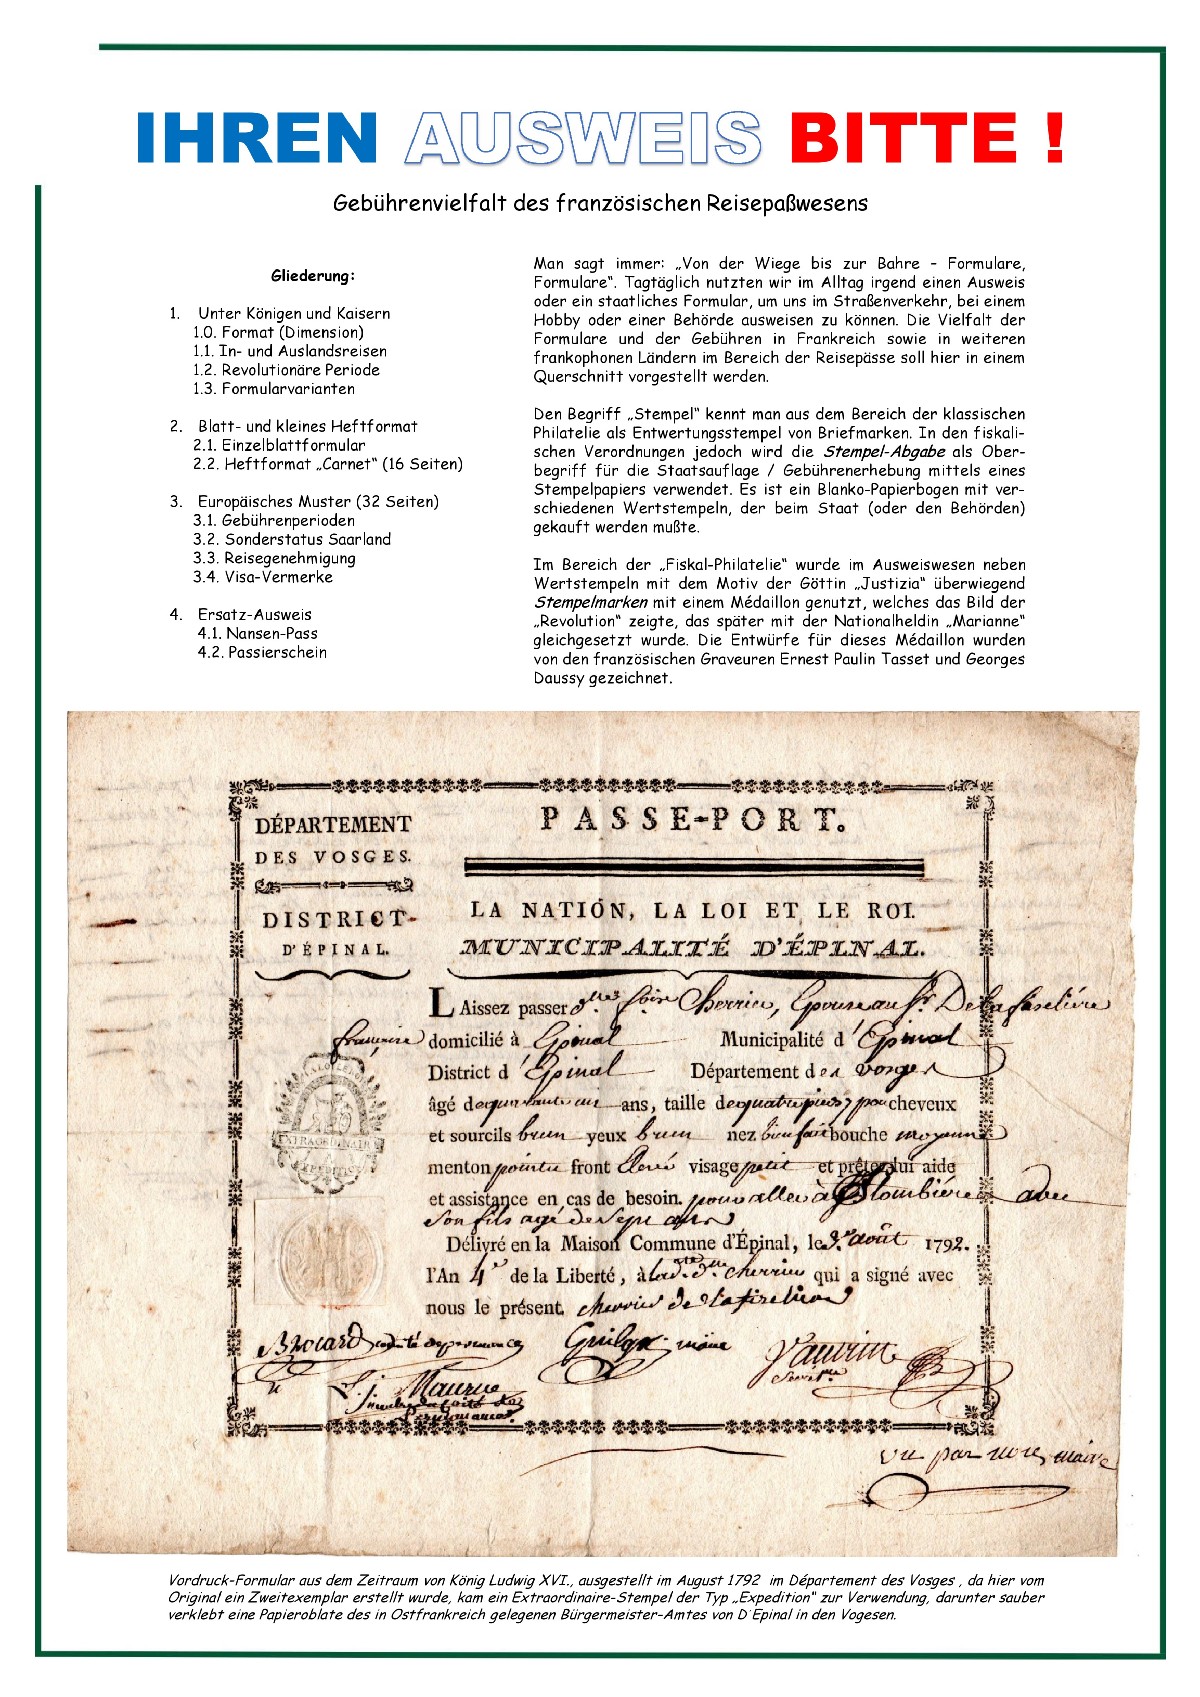 IHREN AUSWEIS BITTE !
Gebührenvielfalt des französischen Reisepaßwesens
Gliederung:
1. Unter Königen und Kaisern
1.0. Format (Dimension)
1.1. In- und Auslandsreisen
1.2. Revolutionäre Periode
1.3. Formularvarianten
2. Blatt- und kleines Heftformat
2.1. Einzelblattformular
2.2. Heftformat „Carnet“ (16 Seiten)
3. Europäisches Muster (32 Seiten)
3.1. Gebührenperioden
3.2. Sonderstatus Saarland
3.3. Reisegenehmigung
3.4. Visa-Vermerke
4. Ersatz-Ausweis
4.1. Nansen-Pass
4.2. Passierschein
Man sagt immer: „Von der Wiege bis zur Bahre - Formulare,
Formulare“. Tagtäglich nutzten wir im Alltag irgend einen Ausweis
oder ein staatliches Formular, um uns im Straßenverkehr, bei einem
Hobby oder einer Behörde ausweisen zu können. Die Vielfalt der
Formulare und der Gebühren in Frankreich sowie in weiteren
frankophonen Ländern im Bereich der Reisepässe soll hier in einem
Querschnitt vorgestellt werden.
Den Begriff „Stempel“ kennt man aus dem Bereich der klassischen
Philatelie als Entwertungsstempel von Briefmarken. In den fiskali-
schen Verordnungen jedoch wird die Stempel-Abgabe als Ober-
begriff für die Staatsauflage / Gebührenerhebung mittels eines
Stempelpapiers verwendet. Es ist ein Blanko-Papierbogen mit ver-
schiedenen Wertstempeln, der beim Staat (oder den Behörden)
gekauft werden mußte.
Im Bereich der „Fiskal-Philatelie“ wurde im Ausweiswesen neben
Wertstempeln mit dem Motiv der Göttin „Justizia“ überwiegend
Stempelmarken mit einem Médaillon genutzt, welches das Bild der
„Revolution“ zeigte, das später mit der Nationalheldin „Marianne“
gleichgesetzt wurde. Die Entwürfe für dieses Médaillon wurden
von den französischen Graveuren Ernest Paulin Tasset und Georges
Daussy gezeichnet.
DÉPARTEMENT
DES VOSGES.
DISTRICT
D'ÉPINAL.
PASSE-PORT.
LA NATION, LA LOI ET LE ROI.
MUNICIPALITÉ D'ÉPINAL.
LAissez passer Cherrier, Epouse au Sr. De
française domicilié à Epinal Municipalité d'Epinal
District d'Epinal Département des Vosges
âgé de quarante un ans, taille de quatre pieds 7 pou cheveux
et sourcils brun yeux brun nez bienfait bouche moyenne
menton pointu front élevé visage petit et prêter lui aide
et assistance en cas de besoin. pour aller à Plombière avec
son fils agé de sept ans
Délivré en la Maison Commune d'Épinal, le août 1792.
l'An 4e de la Liberté, à lad. cherrier qui a signé avec
nous le présent. cherrier de
EXTRAORDINAIRE
EXPEDITION
Brocard
maire
vu par nous maire
Vordruck-Formular aus dem Zeitraum von König Ludwig XVI., ausgestellt im August 1792 im Département des Vosges , da hier vom
Original ein Zweitexemplar erstellt wurde, kam ein Extraordinaire-Stempel der Typ „Expedition“ zur Verwendung, darunter sauber
verklebt eine Papieroblate des in Ostfrankreich gelegenen Bürgermeister-Amtes von D´Epinal in den Vogesen.